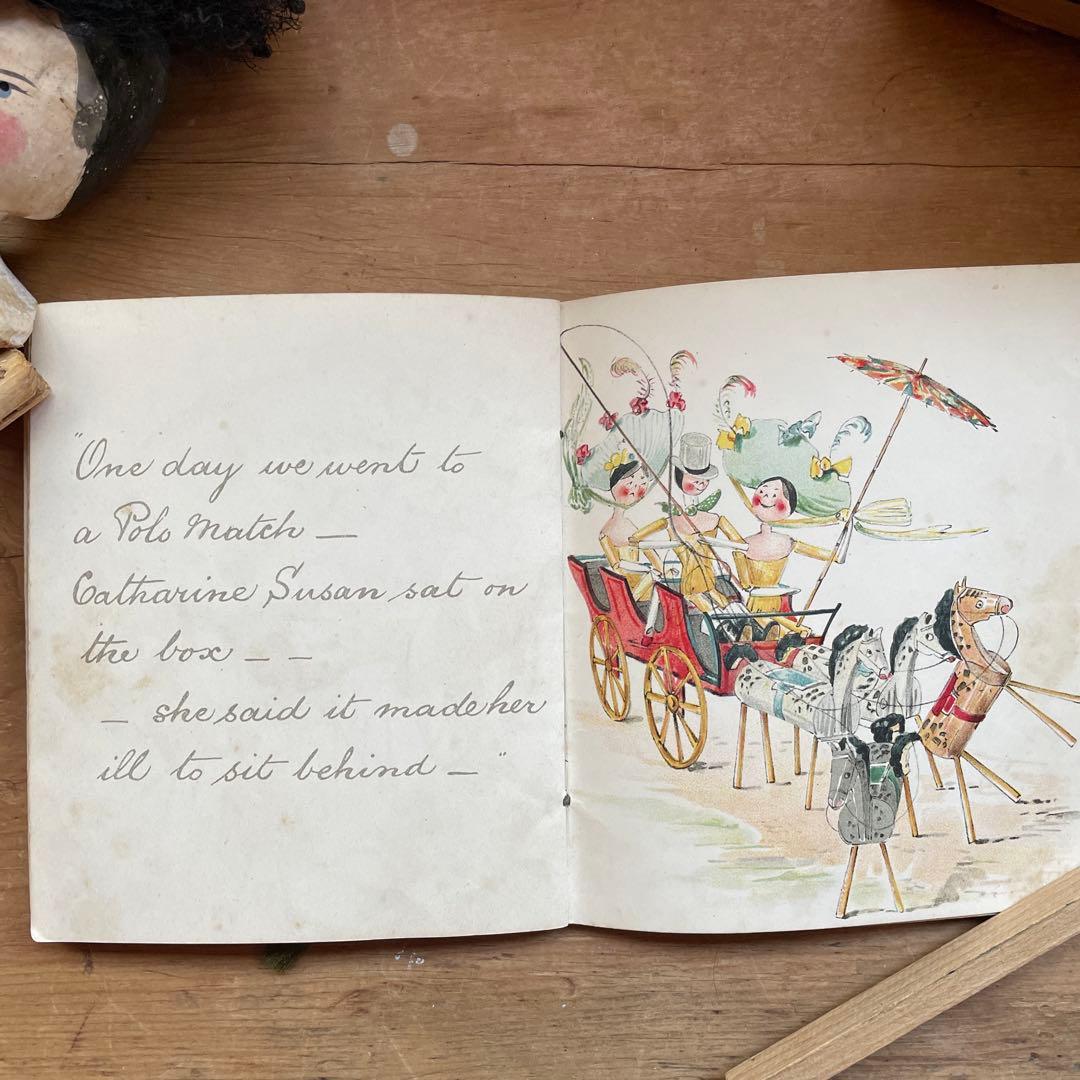 "One day we went to
a Polo Match —
Catharine Susan sat on
the box — —
— she said it made her
ill to sit behind — "